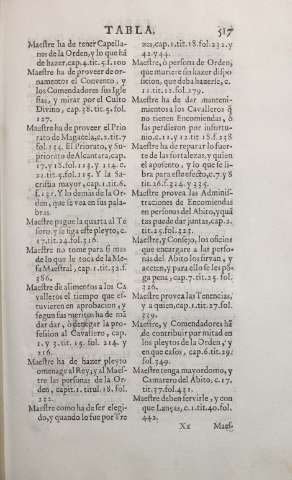 TABLA.
517
Maestre ha de tener Capella-
nes de la Orden, y lo que ha
de hazer, cap. 4. tit. 5. f. 100
Maestre ha de proveer de or-
namentos el Convento, y
los Comendadores sus Igle
sias, y mirar por el Culto
Divino, cap. 38. tit. 5. fol.
127.
Maestre ha de proveer el Prio
rato de Magacela, c. 2. tit. 7
fol. 154. El Priorato, y Su-
priorato de Alcantara, cap.
17. y 18. fol. 113. y 114. c.
21. tit. 5. fol. 115. Y la Sa-
cristia mayor, cap. 1. tit. 6.
Y lo demàs de la Or-
den, que se vea en sus pala-
bras.
Maestre pague la quarta al Te
soro, y se siga este pleyto, c.
17. tit. 24. fol. 316.
Maestre no tome para si mas
de lo que le toca de la Me-
sa Maestral, cap. 1. tit. 32. f.
386.
Maestre dè alimentos a los Ca
valleros el tiempo que es-
tuvieren en aprobacion, y
segun sus meritos ha de mã
dar dar, ò denegar la pro-
fession al Cavallero, cap.
1. y 3. tit. 15. fol. 214. y
216.
Maestre ha de hazer pleyto
omenage al Rey; y al Maes-
tre las personas de la Or-
den, capit. 1. titul. 18. fol.
222.
Maestre como ha de ser elegi-
do, y quando lo fue por
zes, cap. 1. tit. 18. fol. 232. y
42. y 44.
Maestre, ò persona de Orden,
que muriere sin hazer dispo-
sicion, que deba hazerse, c.
11. tit. 12. fol. 179.
Maestre ha de dar manteni-
mientos a los Cavalleros q̃
no tienen Encomiendas, ò
las perdieron por infortu-
nio, c. 11. y 12. tit. 18. f. 258
Maestre ha de reparar lo fuer-
te de las fortalezas, y quien
el aposento, y lo que se li-
bra para este efecto, c. 7. y 8
tit. 26. f. 324. y 335.
Maestre provea las Adminis-
traciones de Encomiendas
en personas del Abito, y quã
tas puede dar juntas, cap. 2.
tit. 25. fol. 323.
Maestre, y Consejo, los oficios
que encargare a las perso-
nas del Abito los sirvan, y
acepten, y para ello se les põ
ga pena, cap. 7. tit. 25. fol.
326.
Maestre provea las Tenencias,
y a quien, cap. 1. tit. 27. fol.
339.
Maestre, y Comendadores hã
de contribuir por mitad en
los pleytos de la Orden, y
en que casos, cap. 6. tit. 29.
fol. 349.
Maestre tenga mayordomo, y
Camarero del Abito, c. 17.
tit. 37. fol. 431.
Maestre deben servirle, y con
que Lanças, c. 1. tit. 40. fol.
442.
Xx
Maes-